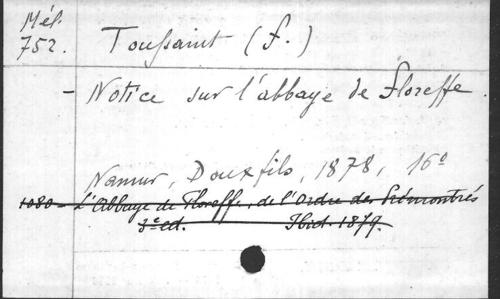 Mél.
752.
Toussaint (f.)
- Notice sur l'abbaye de Floreffe
Namur, Douxfils, 1878, 16º
1080 - L'Abbaye de Floreffe, de l'Ordre des Prémontrés
3e ed. Ibid. 1879.